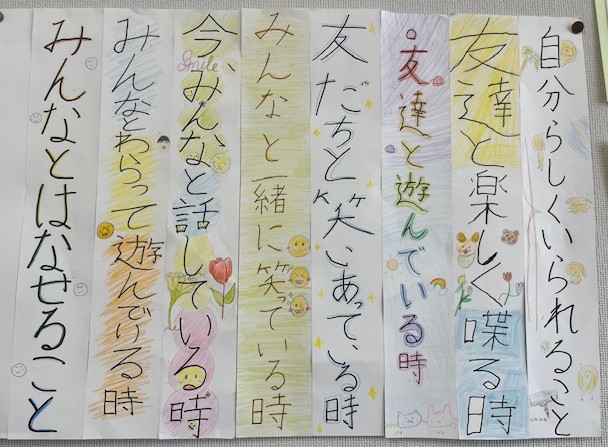 自分らしくいられること
友達と楽しく喋る時
・友達と遊んでいる時
友だちと笑いあっている時
みんなと一緒に笑っている時
今、みんなと話している時
Smile
みんなとわらって遊んでいる時
みんなとはなせること